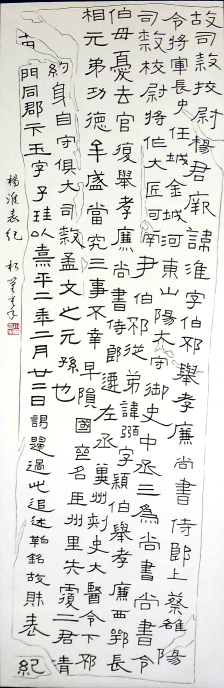 故司隸校尉楊君厥諱淮字伯邳舉孝廉尚書侍郎上蔡雒陽
令將軍長史任城金城河東山陽大守御史中丞三為尚書尚書令
司隸校尉將作大匠河南尹伯邳從弟諱弼字穎伯舉孝廉西鄂長
伯母憂去官復舉孝廉尚書侍郎遷左丞冀州刺史大醫令下邳
相元弟功德牟盛當究三事不幸早隕國喪名臣州里失覆二君清
約身自守俱大司隸孟文之元孫也
門同郡卞玉字子珪以熹平二年二月廿二日謁歸過此追述勒銘故財表紀
楊淮表紀